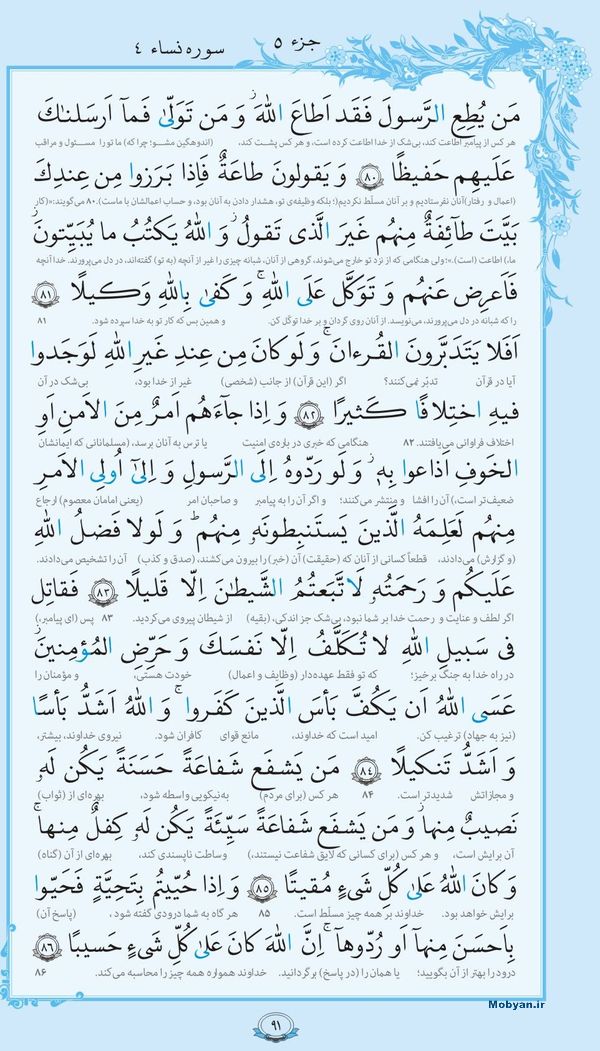 جزء ۵
سوره نساء ٤
مَن يُطِعِ الرَّسولَ فَقَد اَطاعَ اللهَ ۖ وَ مَن تَوَلّىٰ فَمآ اَرسَلناكَ
هر کس از پیامبر اطاعت کند، بی‌شک از خدا اطاعت کرده است، و هر کس پشت کند، (اندوهگین مشو؛ چرا که) ما تو را مسئول و مراقب
عَلَيهِم حَفيظًا ۸۰ وَ يَقولونَ طاعَةٌ فَاِذا بَرَزوا مِن عِندِكَ
(اعمال و رفتار) آنان نفرستادیم و بر آنان مسلّط نکردیم؛ بلکه وظیفه‌ی تو، هشدار دادن به آنان بود، و حساب اعمالشان با ماست). ۸۰ می‌گویند:«(کار
بَيَّتَ طآئِفَةٌ مِنهُم غَيرَ الَّذى تَقولُ ۖ وَ اللهُ يَكتُبُ ما يُبَيِّتونَ ۖ
ما)، اطاعت (است).»؛ ولی هنگامی که از نزد تو خارج می‌شوند، گروهی از آنان، شبانه چیزی را غیر از آنچه (به تو) گفته‌اند، در دل می‌پرورند. خدا آنچه
فَاَعرِض عَنهُم وَ تَوَكَّل عَلَى اللهِ ۚ وَ كَفىٰ بِاللهِ وَكيلًا ۸۱
را که شبانه در دل می‌پرورند، می‌نویسد. از آنان روی گردان و بر خدا توکّل کن. و همین بس که کار تو به خدا سپرده شود. ۸۱
اَفَلا يَتَدَبَّرونَ القُرءانَ ۚ وَ لَو كانَ مِن عِندِ غَيرِ اللهِ لَوَجَدوا
آیا در قرآن تدبّر نمی‌کنند؟ اگر (این قرآن) از جانب (شخصی) غیر از خدا بود، بی‌شک در آن
فيهِ اختِلافًا كَثيرًا ۸۲ وَ اِذا جآءَهُم اَمرٌ مِنَ الاَمنِ اَوِ
اختلاف فراوانی می‌یافتند. ۸۲ هنگامی که خبری در باره‌ی امنیت یا ترس به آنان برسد، (مسلمانانی که ایمانشان
الخَوفِ اَذاعوا بِهٖ ۖ وَ لَو رَدّوهُ اِلَى الرَّسولِ وَ اِلىٰٓ اُولِى الاَمرِ
ضعیف‌تر است،) آن را افشا و منتشر می‌کنند؛ و اگر آن را به پیامبر و صاحبان امر (یعنی امامان معصوم) ارجاع
مِنهُم لَعَلِمَهُ الَّذينَ يَستَنبِطونَهٗ مِنهُم ۗ وَ لَولا فَضلُ اللهِ
(و گزارش) می‌دادند، قطعاً کسانی از آنان که (حقیقت) آن (خبر) را بیرون می‌کشند، (صدق و کذب) آن را تشخیص می‌دادند.
عَلَيكُم وَ رَحمَتُهٗ لَاتَّبَعتُمُ الشَّيطٰنَ اِلّا قَليلًا ۸۳ فَقاتِل
اگر لطف و عنایت و رحمت خدا بر شما نبود، بی‌شک جز اندکی، (بقیه) از شیطان پیروی می‌کردید. ۸۳ پس (ای پیامبر،)
فى سَبيلِ اللهِ لا تُكَلَّفُ اِلّا نَفسَكَ وَ حَرِّضِ المُؤمِنينَ ۖ
در راه خدا به جنگ برخیز؛ که تو فقط عهده‌دار (وظایف و اعمال) خودت هستی، و مؤمنان را
عَسَى اللهُ اَن يَكُفَّ بَأسَ الَّذينَ كَفَروا ۚ وَ اللهُ اَشَدُّ بَأسًا
(نیز به جهاد) ترغیب کن. امید است که خداوند، مانع قوای کافران شود. نیروی خداوند، بیشتر،
وَ اَشَدُّ تَنكيلًا ۸٤ مَن يَشفَع شَفاعَةً حَسَنَةً يَكُن لَهٗ
و مجازاتش شدیدتر است. ۸۴ هر کس (برای مردم) به‌نیکویی واسطه شود، بهره‌ای از (ثواب)
نَصيبٌ مِنها ۖ وَ مَن يَشفَع شَفاعَةً سَيِّئَةً يَكُن لَهٗ كِفلٌ مِنها ۗ
آن برایش است، و هر کس (برای کسانی که لایق شفاعت نیستند،) وساطت ناپسندی کند، بهره‌ای از آن (گناه)
وَ كانَ اللهُ عَلىٰ كُلِّ شَىءٍ مُقيتًا ۸۵ وَ اِذا حُيّيتُم بِتَحِيَّةٍ فَحَيّوا
برایش خواهد بود. خداوند بر همه چیز مسلّط است. ۸۵ هر گاه به شما درودی گفته شود، (پاسخ آن)
بِاَحسَنَ مِنهآ اَو رُدّوهآ ۗ اِنَّ اللهَ كانَ عَلىٰ كُلِّ شَىءٍ حَسيبًا ۸٦
درود را بهتر از آن بگویید؛ یا همان را (در پاسخ) برگردانید. خداوند همواره همه چیز را محاسبه می‌کند. ۸۶
Mobyan.ir
۹۱